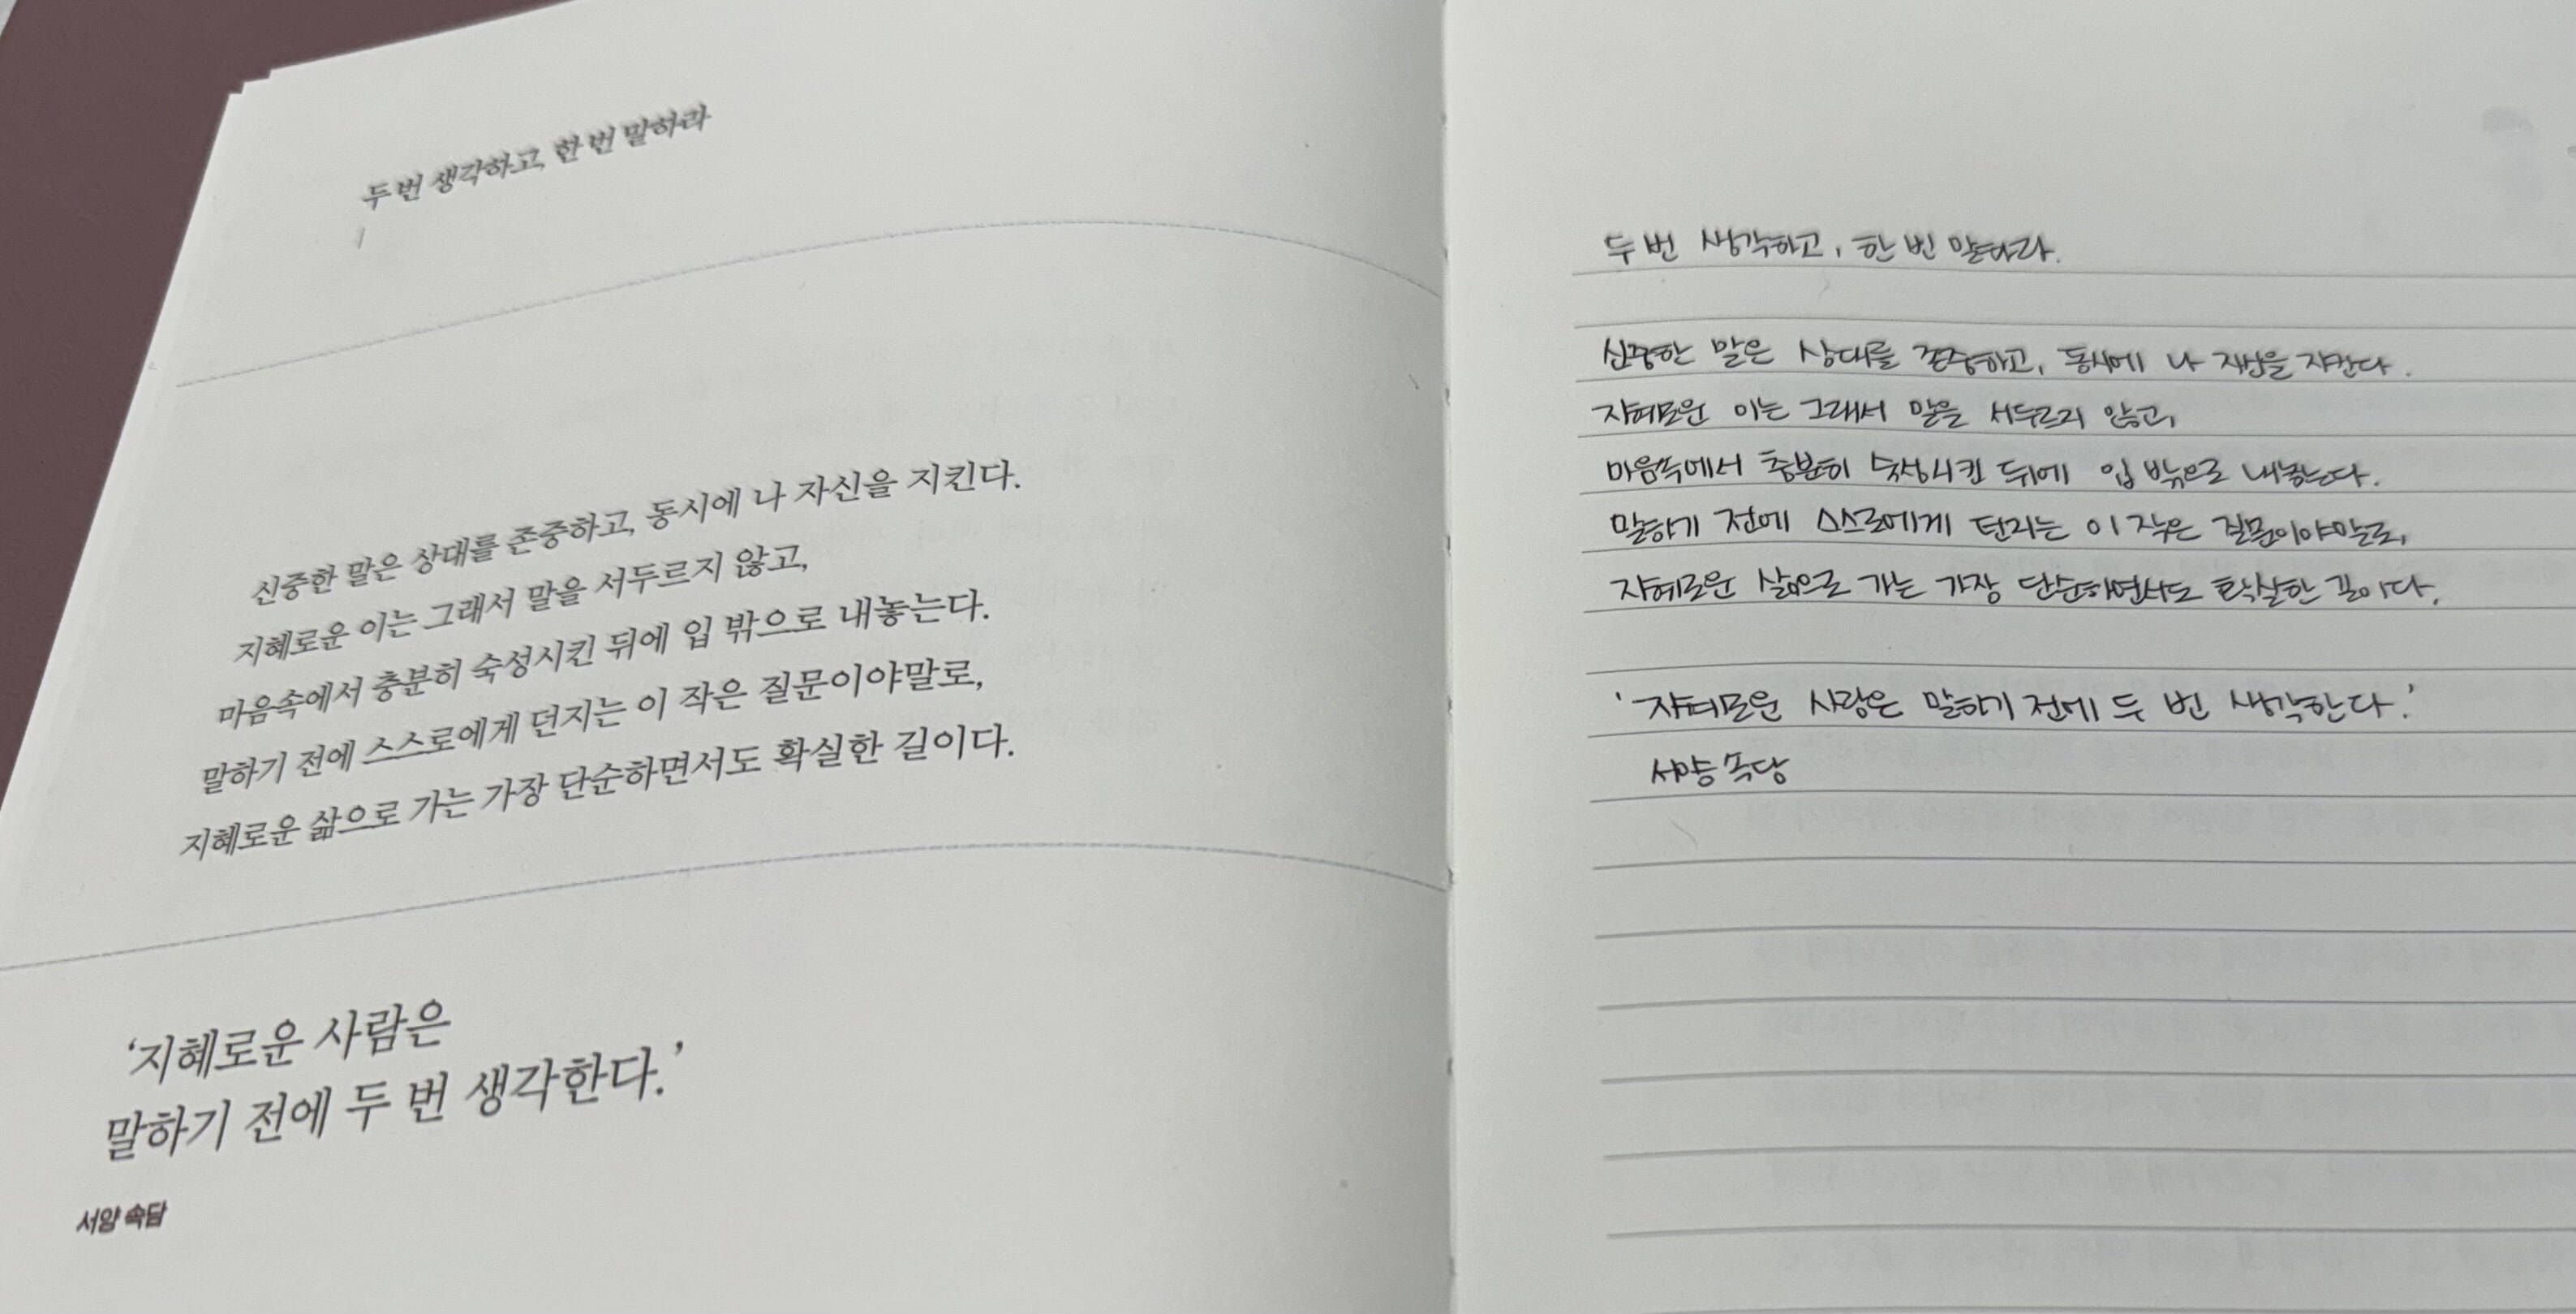 두 번 생각하고, 한 번 말하라
신중한 말은 상대를 존중하고, 동시에 나 자신을 지킨다.
지혜로운 이는 그래서 말을 서두르지 않고,
마음속에서 충분히 숙성시킨 뒤에 입 밖으로 내놓는다.
말하기 전에 스스로에게 던지는 이 작은 질문이야말로,
지혜로운 삶으로 가는 가장 단순하면서도 확실한 길이다.
‘지혜로운 사람은
말하기 전에 두 번 생각한다.’
서양 속담
두 번 생각하고, 한 번 말하라.
신중한 말은 상대를 존중하고, 동시에 나 자신을 지킨다.
지혜로운 이는 그래서 말을 서두르지 않고,
마음속에서 충분히 숙성시킨 뒤에 입 밖으로 내놓는다.
말하기 전에 스스로에게 던지는 이 작은 질문이야말로,
지혜로운 삶으로 가는 가장 단순하면서도 확실한 길이다.
‘지혜로운 사람은 말하기 전에 두 번 생각한다.’
서양 속담